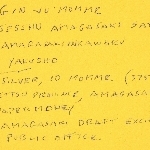 GIN NU MOMME
SESSHU AMAGASAKI SAT
AMAGASAKI HIKAWARU
YAKUSHO
SILVER, 10 MOMME (375
SETTSU PROVINCE, AMAGASA
PAPER MONEY
AMAGASAKI DRAFT EXCH
PUBLIC OFFICE